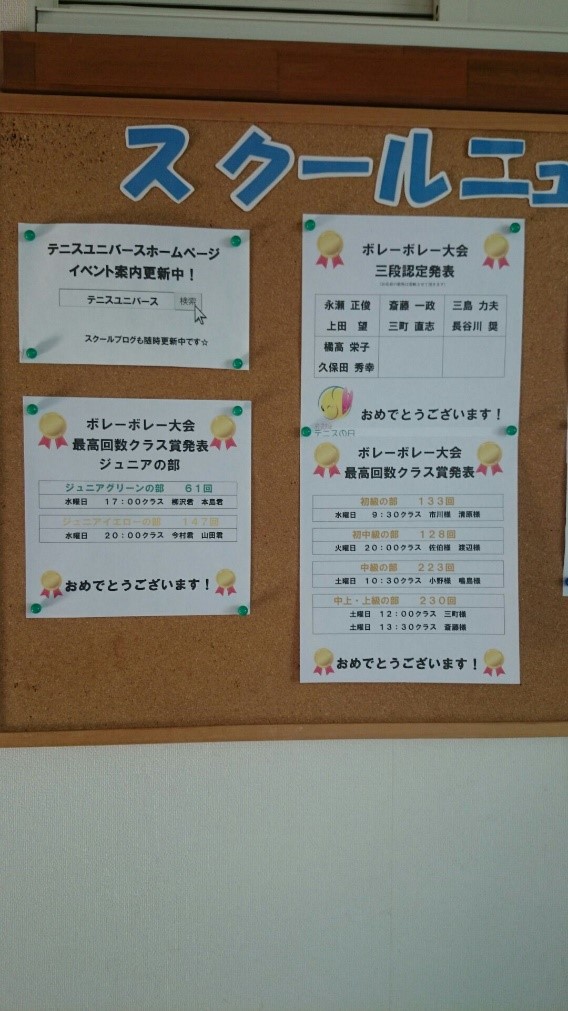 スクールニュ
テニスユニバースホームページ
イベント案内更新中！
テニスユニバース 検索
スクールブログも随時更新中です☆
ボレーボレー大会
最高回数クラス賞発表
ジュニアの部
ジュニアグリーンの部 61回
水曜日 17：00クラス 柳沢君 本島君
ジュニアイエローの部 147回
水曜日 20：00クラス 今村君 山田君
おめでとうございます！
ボレーボレー大会
三段認定発表
永瀬 正俊 斎藤 一政 三島 力夫
上田 望 三町 直志 長谷川 奨
橘高 栄子
久保田 秀幸
おめでとうございます！
テニスの日
ボレーボレー大会
最高回数クラス賞発表
初級の部 133回
水曜日 9：30クラス 市川様 清原様
初中級の部 128回
火曜日 20：00クラス 佐伯様 渡辺様
中級の部 223回
土曜日 10：30クラス 小野様 鳴島様
中上・上級の部 230回
土曜日 12：00クラス 三町様
土曜日 13：30クラス 斎藤様
おめでとうございます！